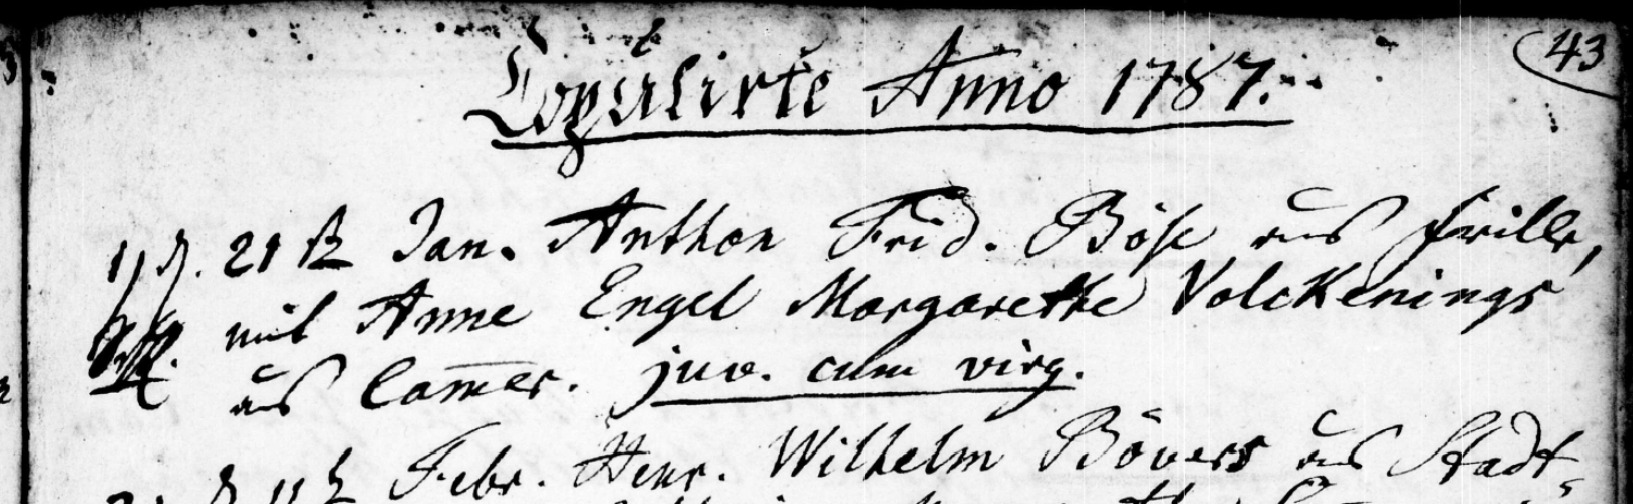 43
Copulirte Anno 1787.
1, d. 21 t Jan. Anthon Frid. Böse aus Frille,
mit Anne Engel Margarethe Volckenings
aus Cam̅er. juv. cum virg.
2, d. 11 t Febr. Henr. Wilhelm Bövers aus Stadt-